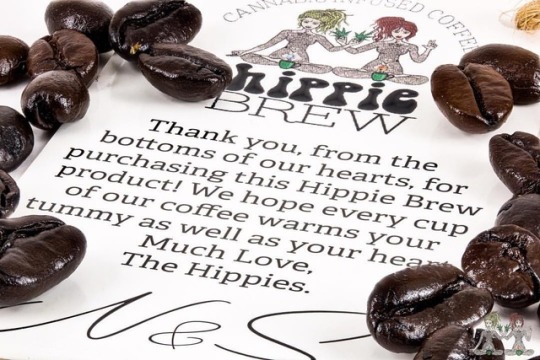 CANNABIS INFUSED COFFEE
hippie
BREW
Thank you, from the
bottoms of our hearts, for
purchasing this Hippie Brew
product! We hope every cup
of our coffee warms your
tummy as well as your heart.
Much Love,
The Hippies.
N & S